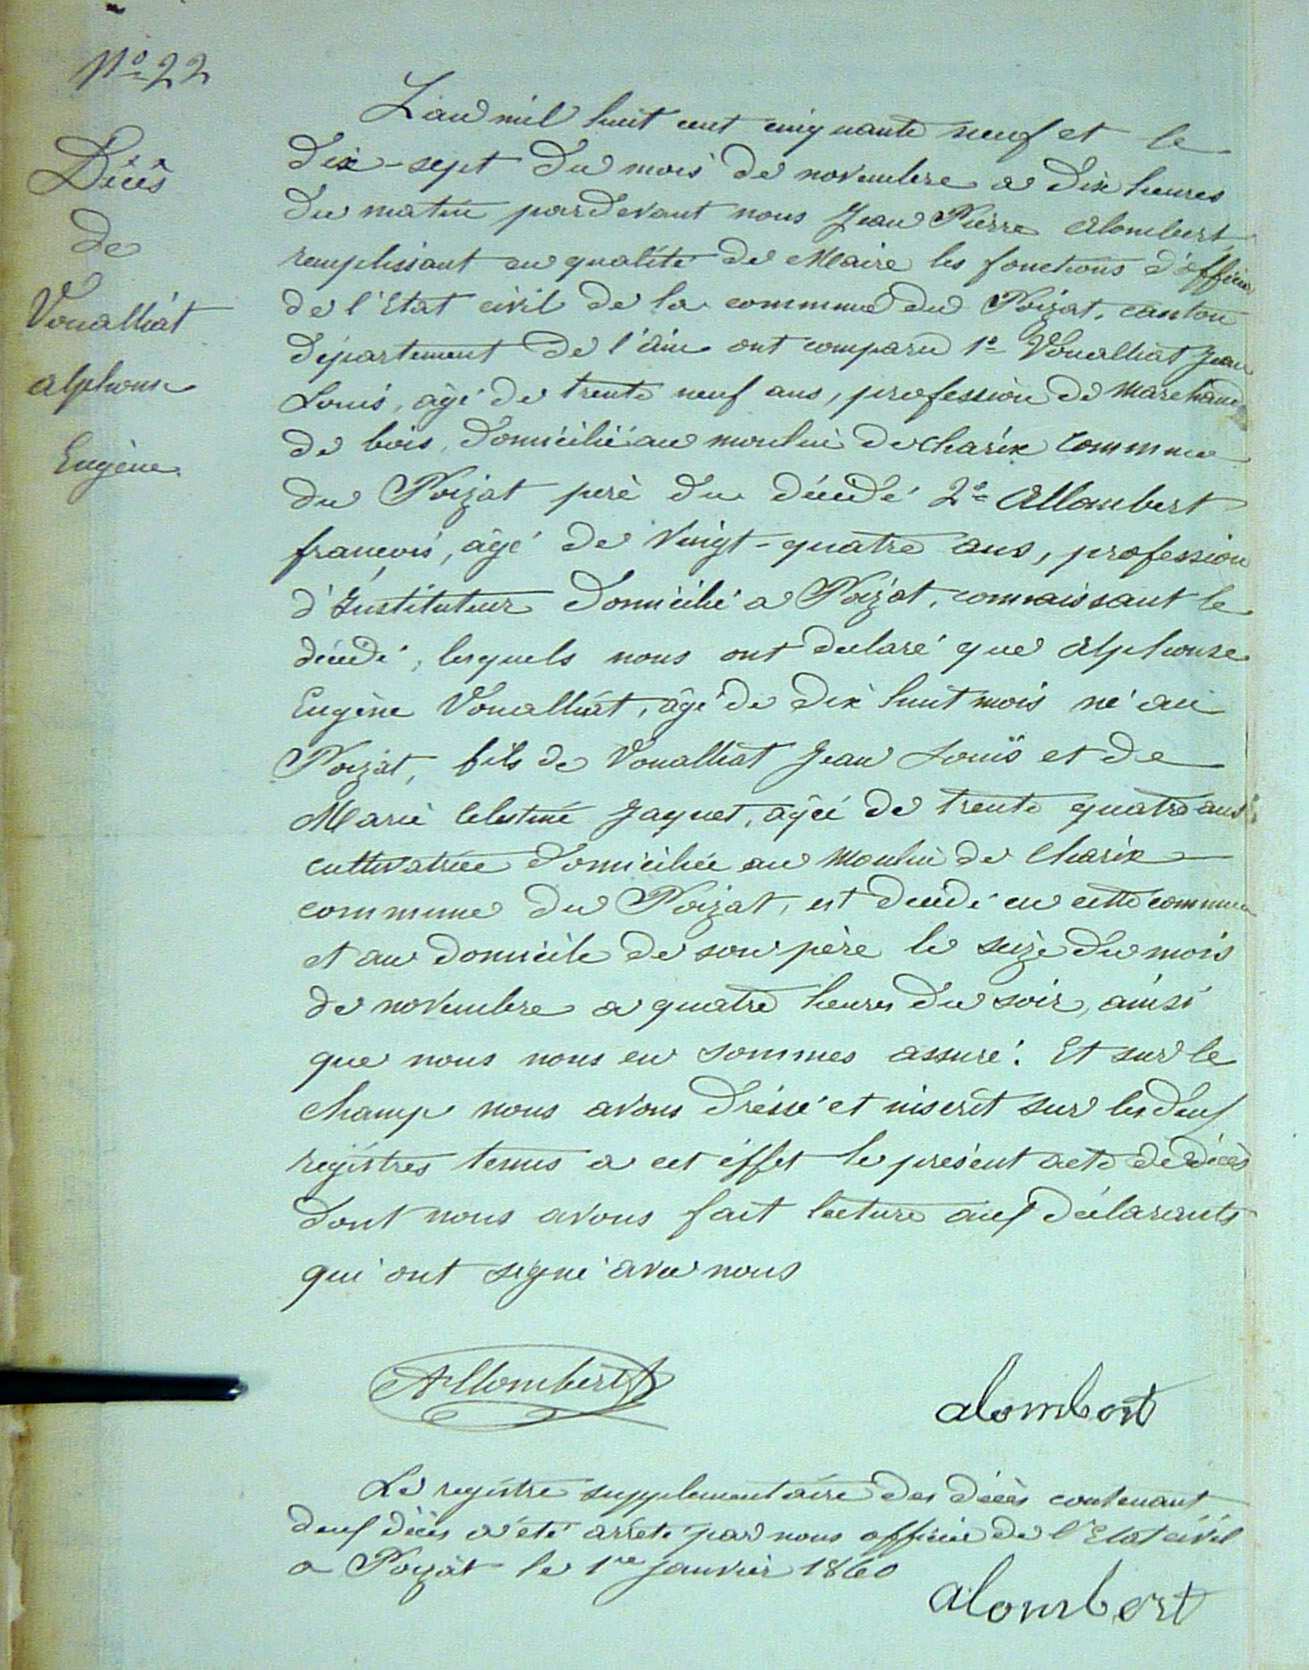 N° 22
Décès
de
Voualliat
alphonse
Eugène.
L'an mil huit cent cinquante neuf et le
dix-sept du mois de novembre a dix heures
du matin pardevant nous Jean Pierre Alombert
remplissant en qualité de Maire les fonctions d'officier
de l'Etat civil de la commune du Poizat, canton
département de l'ain ont comparu 1° Voualliat Jean
Louis, âgé de trente neuf ans, profession de Marchand
de bois, domicilié au moulin de charix commune
du Poizat père du décédé 2° Allombert
francois, âgé de vingt-quatre ans, profession
d'Instituteur domicilié a Poizat, connaissant le
décédé, lesquels nous ont declaré que alphonse
Eugène Voualliat, âgé de dix huit mois né au
Poizat, fils de Voualliat Jean Louis et de
Marie Celestine Jaquet, âgée de trente quatre ans
cultivatrice domiciliée au Moulin de Charix
commune du Poizat, est decedé en cette commune
et au domicile de son père le seize du mois
de novembre a quatre heures du soir, ainsi
que nous nous en sommes assuré. Et sur le
champ nous avons dressé et inscrit sur les deux
registres tenus a cet effet le présent acte de décès
dont nous avons fait lecture aux déclarants
qui ont signé avec nous
Allombert
alombert
Le registre supplementaire des décès contenant
deux décès a été arrêté par nous officier de l'Etat civil
a Poizat le 1re Janvier 1860
alombert